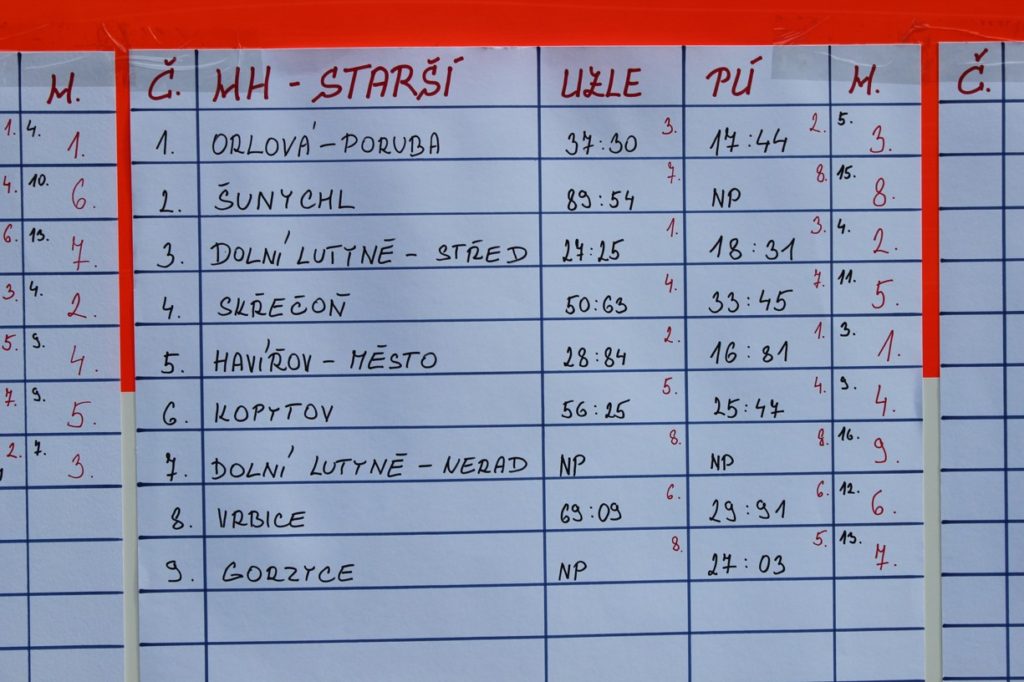 M. Č. MH - STARŠÍ UZLE PÚ M. Č.
1. 4. 1. 1. ORLOVÁ - PORUBA 37:30 3. 17:44 2. 5. 3.
4. 10. 6. 2. ŠUNYCHL 89:54 7. NP 8. 15. 8.
6. 13. 7. 3. DOLNÍ LUTYNĚ - STŘED 27:25 1. 18:31 3. 4. 2.
3. 4. 2. 4. SKŘEČOŇ 50:63 4. 33:45 7. 11. 5.
5. 9. 4. 5. HAVÍŘOV - MĚSTO 28:84 2. 16:81 1. 3. 1.
7. 9. 5. 6. KOPYTOV 56:25 5. 25:47 4. 9. 4.
2. 7. 3. 7. DOLNÍ LUTYNĚ - NERAD NP 8. NP 8. 16. 9.
8. VRBICE 69:09 6. 29:91 6. 12. 6.
9. GORZYCE NP 8. 27:03 5. 13. 7.